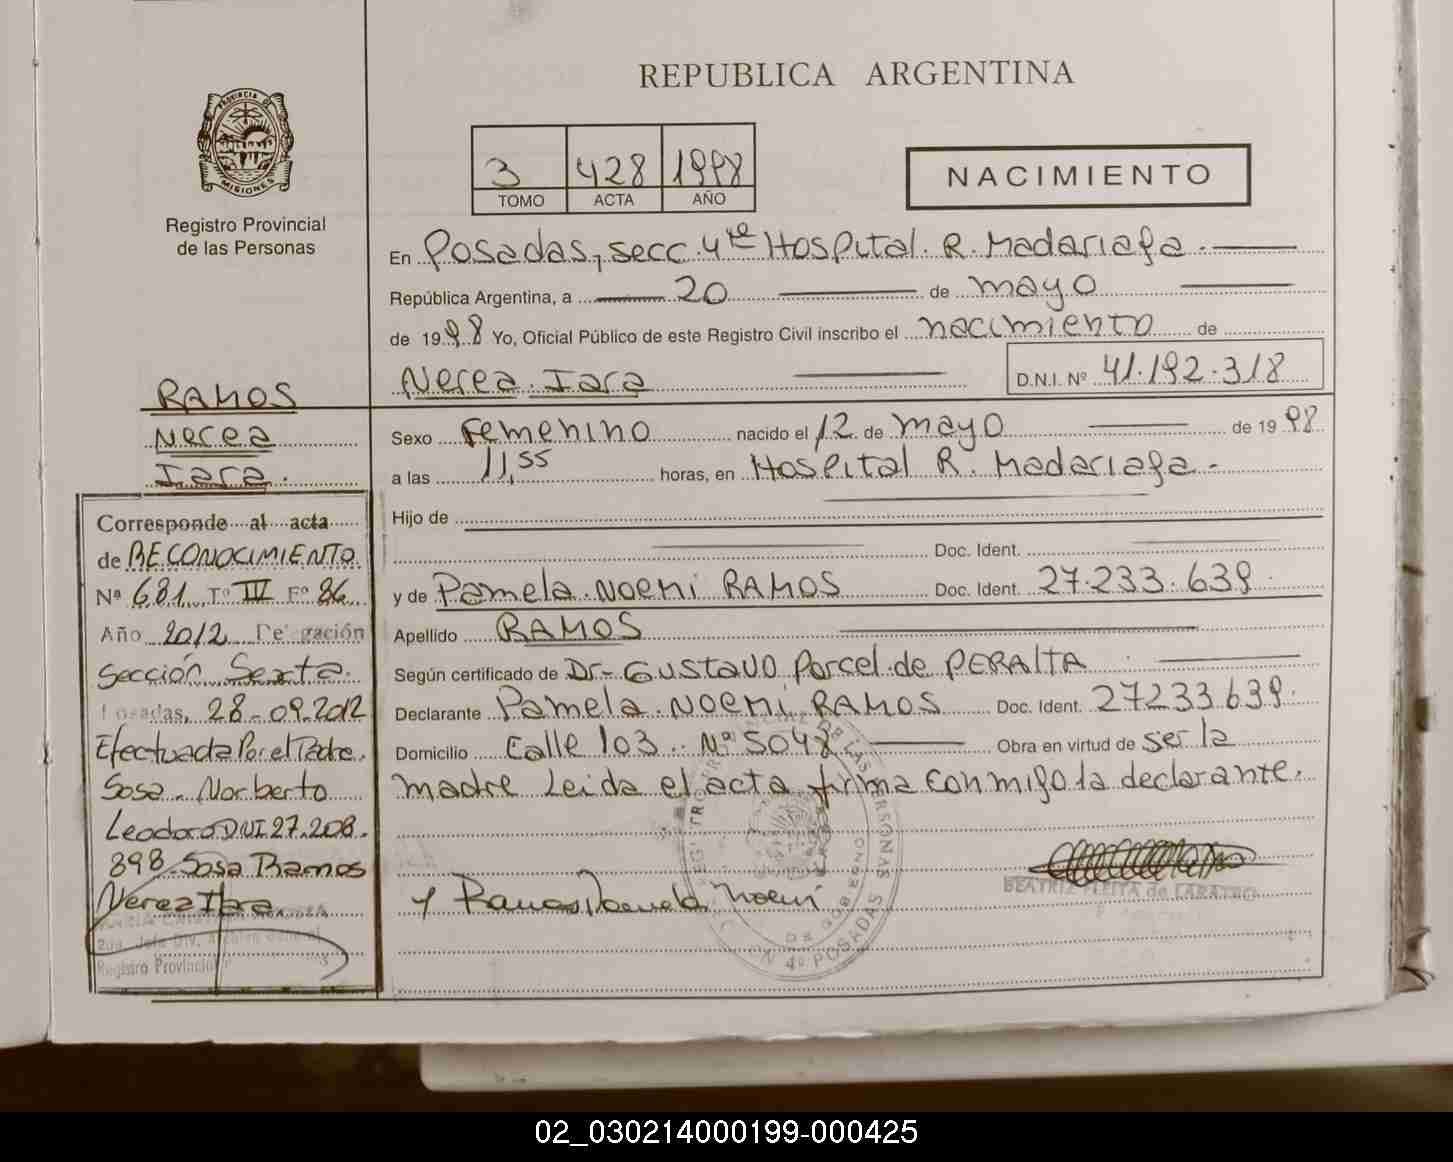 REPUBLICA ARGENTINA
PROVINCIA DE
MISIONES
Registro Provincial
de las Personas
3 428 1998
TOMO ACTA AÑO
NACIMIENTO
En Posadas, secc. 4ta Hospital R. Madariaga.
República Argentina, a 20 de mayo
de 1998 Yo, Oficial Público de este Registro Civil inscribo el nacimiento de
Nerea Iara D.N.I. Nº 41.192.318
RAMOS
Nerea
Iara.
Sexo Femenino nacido el 12 de mayo de 1998
a las 11,55 horas, en Hospital R. Madariaga.
Hijo de
Doc. Ident.
y de Pamela Noemi RAMOS Doc. Ident. 27.233.639.
Apellido RAMOS
Según certificado de Dr. Gustavo Porcel de PERALTA
Declarante Pamela Noemi RAMOS Doc. Ident. 27233.639.
Domicilio Calle 103 Nº 5048 Obra en virtud de ser la
madre Leida el acta firma conmigo la declarante.
Corresponde al acta
de RECONOCIMIENTO
Nº 681 Tº IV Fº 86
Año 2012 Delegación
Sección Sexta.
Posadas, 28-09-2012
Efectuada Por el Padre.
Sosa Norberto
Leodoro DNI 27.208.
898 Sosa Ramos
Nerea Iara
Registro Provincial
Ramos Pamela Noemi
BEATRIZ
4º POSADAS
02_030214000199-000425